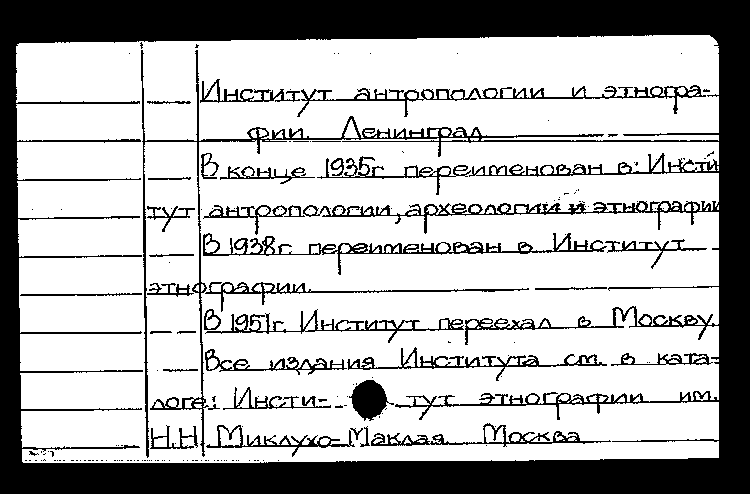 Институт антропологии и этногра-
фии. Ленинград
В конце 1935г. переименован в: Инсти
тут антропологии, археологии и этнографии
В 1938г. переименован в Институт
этнографии.
В 1951г. Институт переехал в Москву.
Все издания Института см. в ката-
логе: Инсти- тут этнографии им.
Н.Н. Миклухо-Маклая. Москва